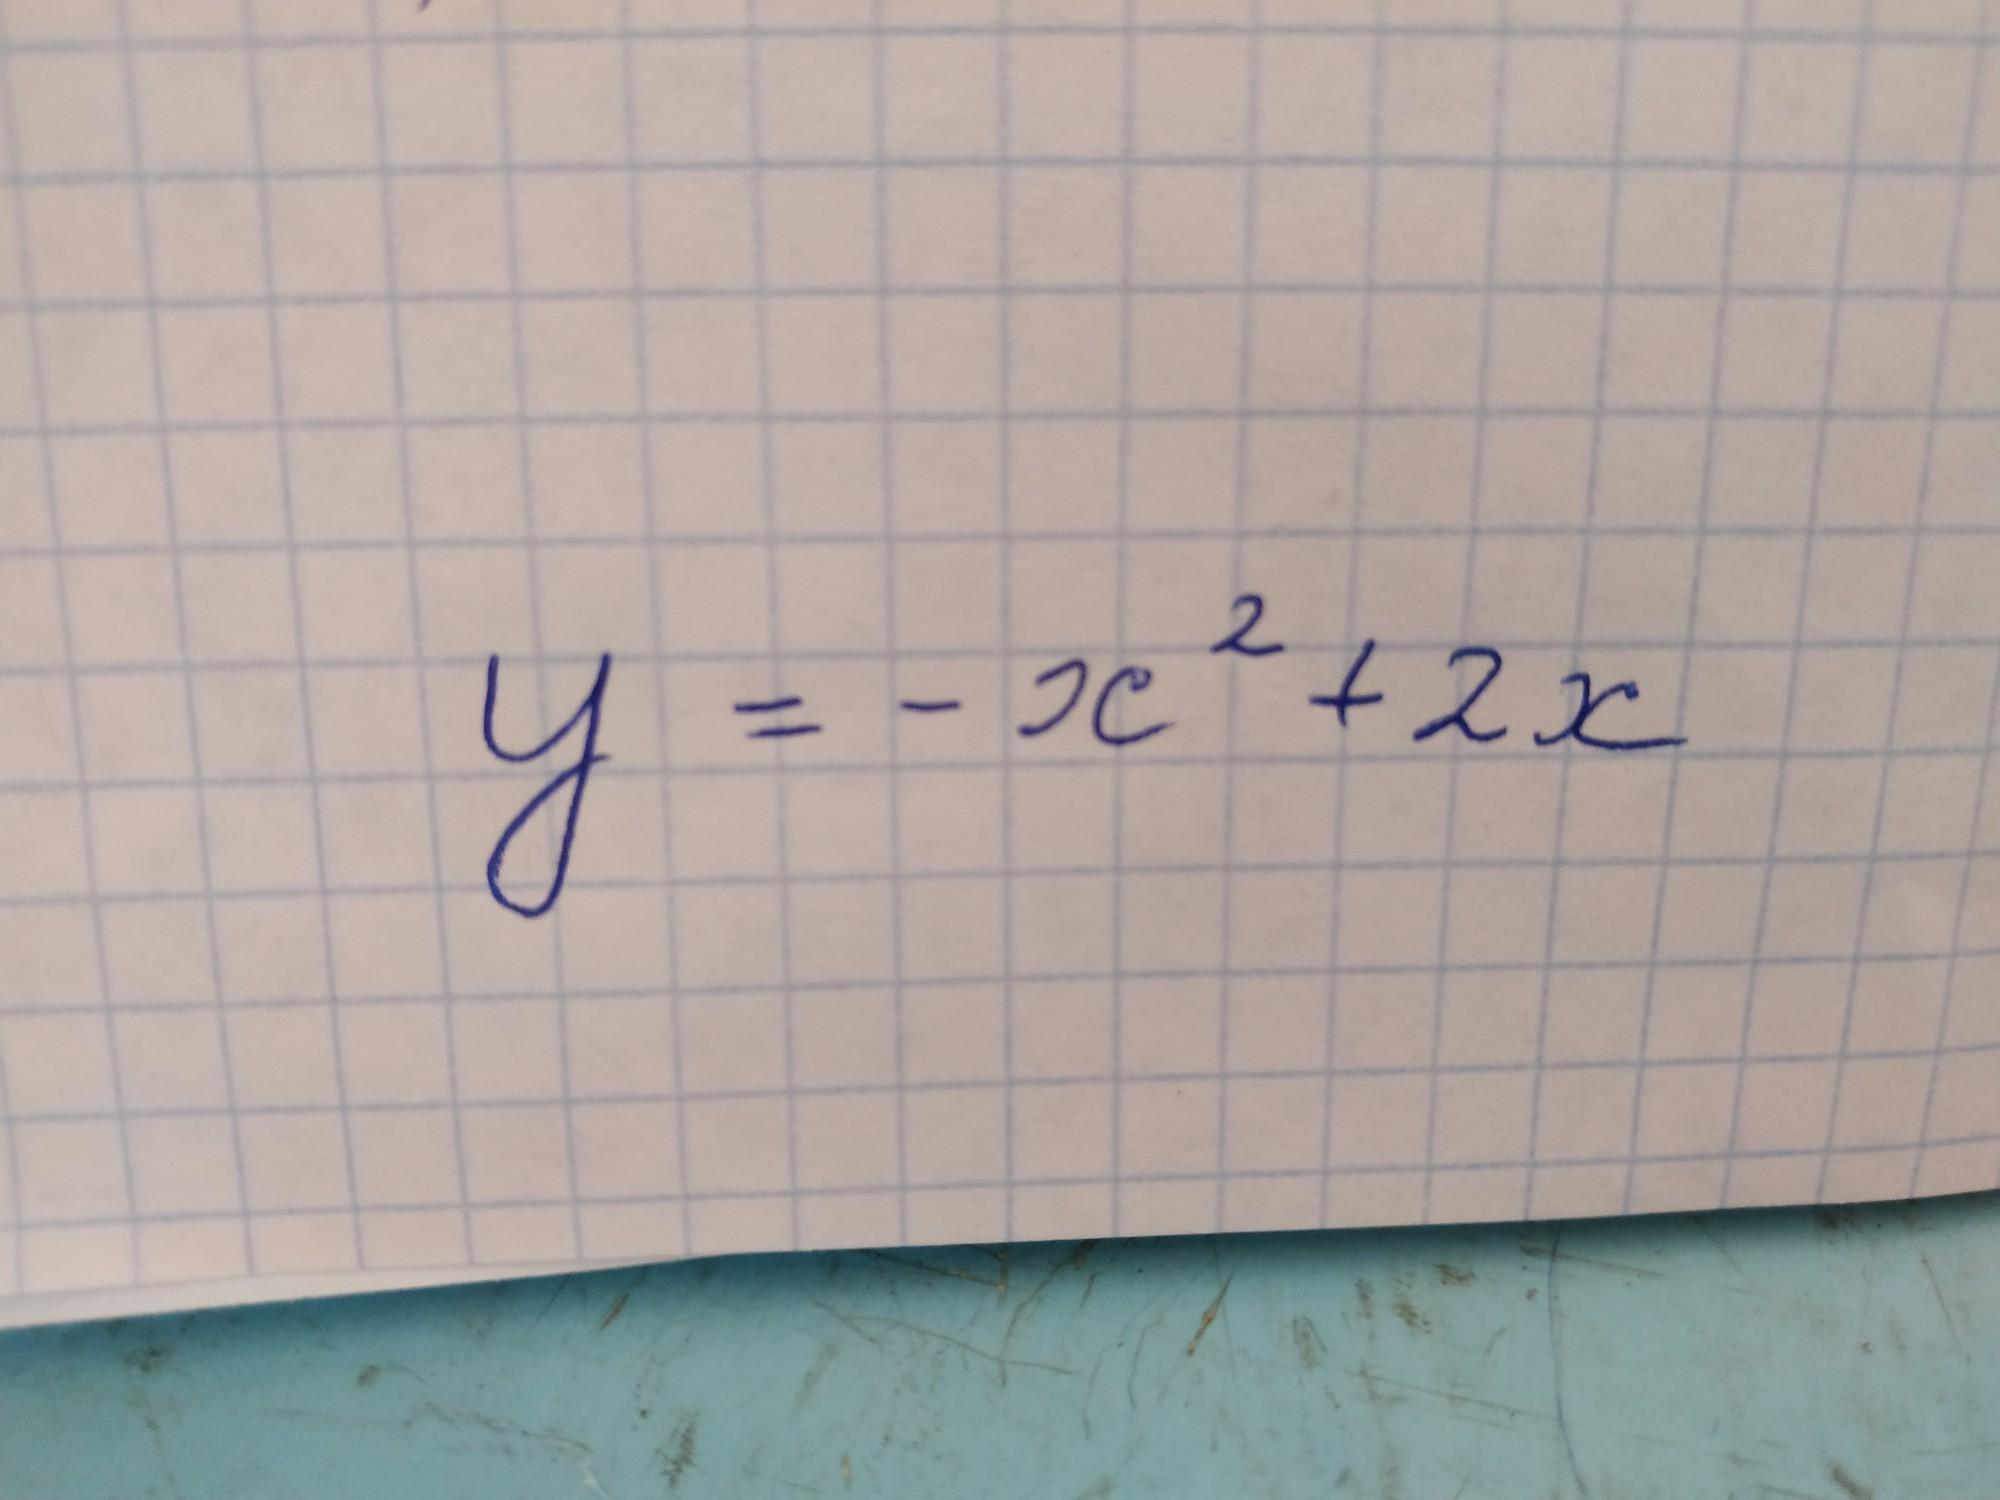 y = - x² + 2x